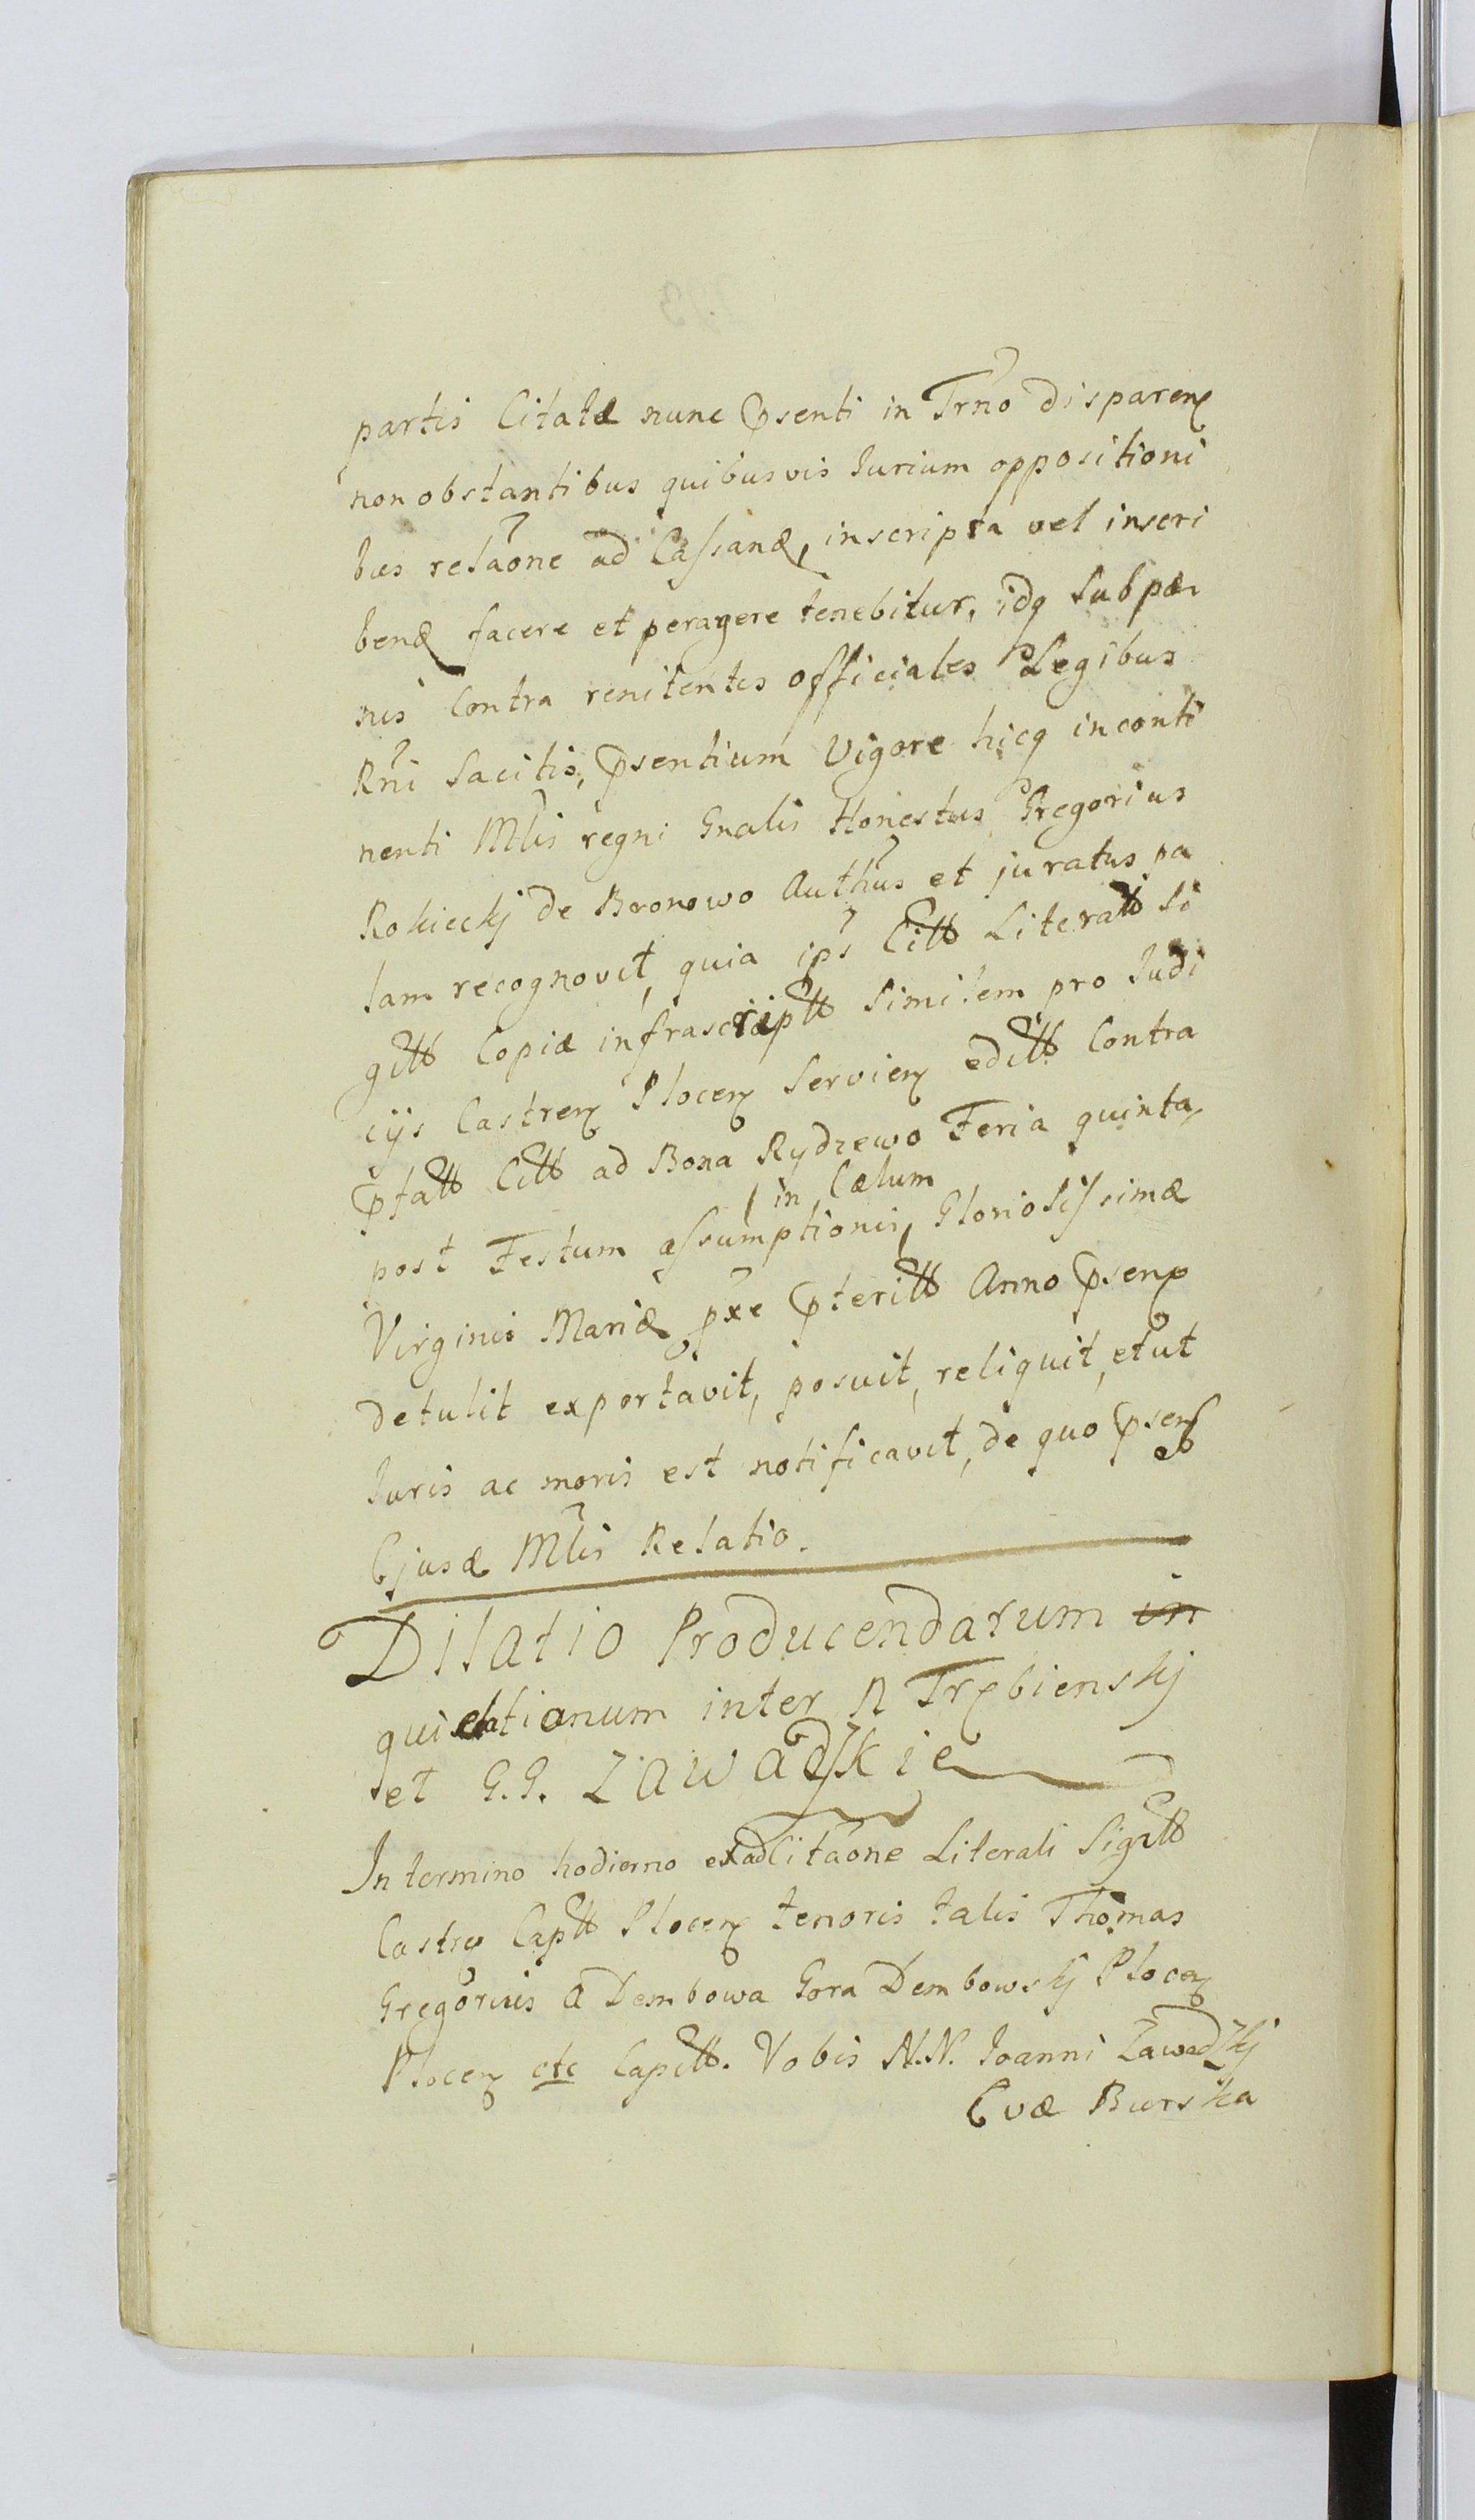 partis Citatæ nunc psenti in Trno disparen
non obstantibus quibusvis Iurium oppositioni
bus relaone ad Cassand, inscripta vel inscri
bend facere et peragere tenebitur, idq Sub pæ
nis Contra renitentes officiales Legibus
Rni Sacitis, psentium Vigore hicq inconti
nenti Mlis regni Gnalis Honestus Gregorius
Rokieckj de Boronowo Authus et juratus pa
lam recognovit, quia ips Citt Literatt Si
gitt Copiæ infrascriptt Similem pro Iudi
cijs Castren Plocen Servien editt Contra
pfatt Citt ad Bona Rydzewo Feria quinta
post Festum assumptionis, Gloriosissimæ
in Cælum
Virginis Mariæ pxe pteritt Anno psen
detulit exportavit, posuit, reliquit, et ut
Iuris ac moris est notificavit, de quo psens
Ejusd Mlis Relatio.
Dilatio Producendarum in
quietationum inter N Trębienskj
et G.G. Zawadzkie
In termino hodierno ex ad Citaone Literali Sigitt
Castre Captt Plocen tenoris talis Thomas
Gregorius a Dembowa Gora Dembowskj Plocen
Plocen etc Capitt. Vobis N.N. Ioanni Zawadzkj
Evæ Burska